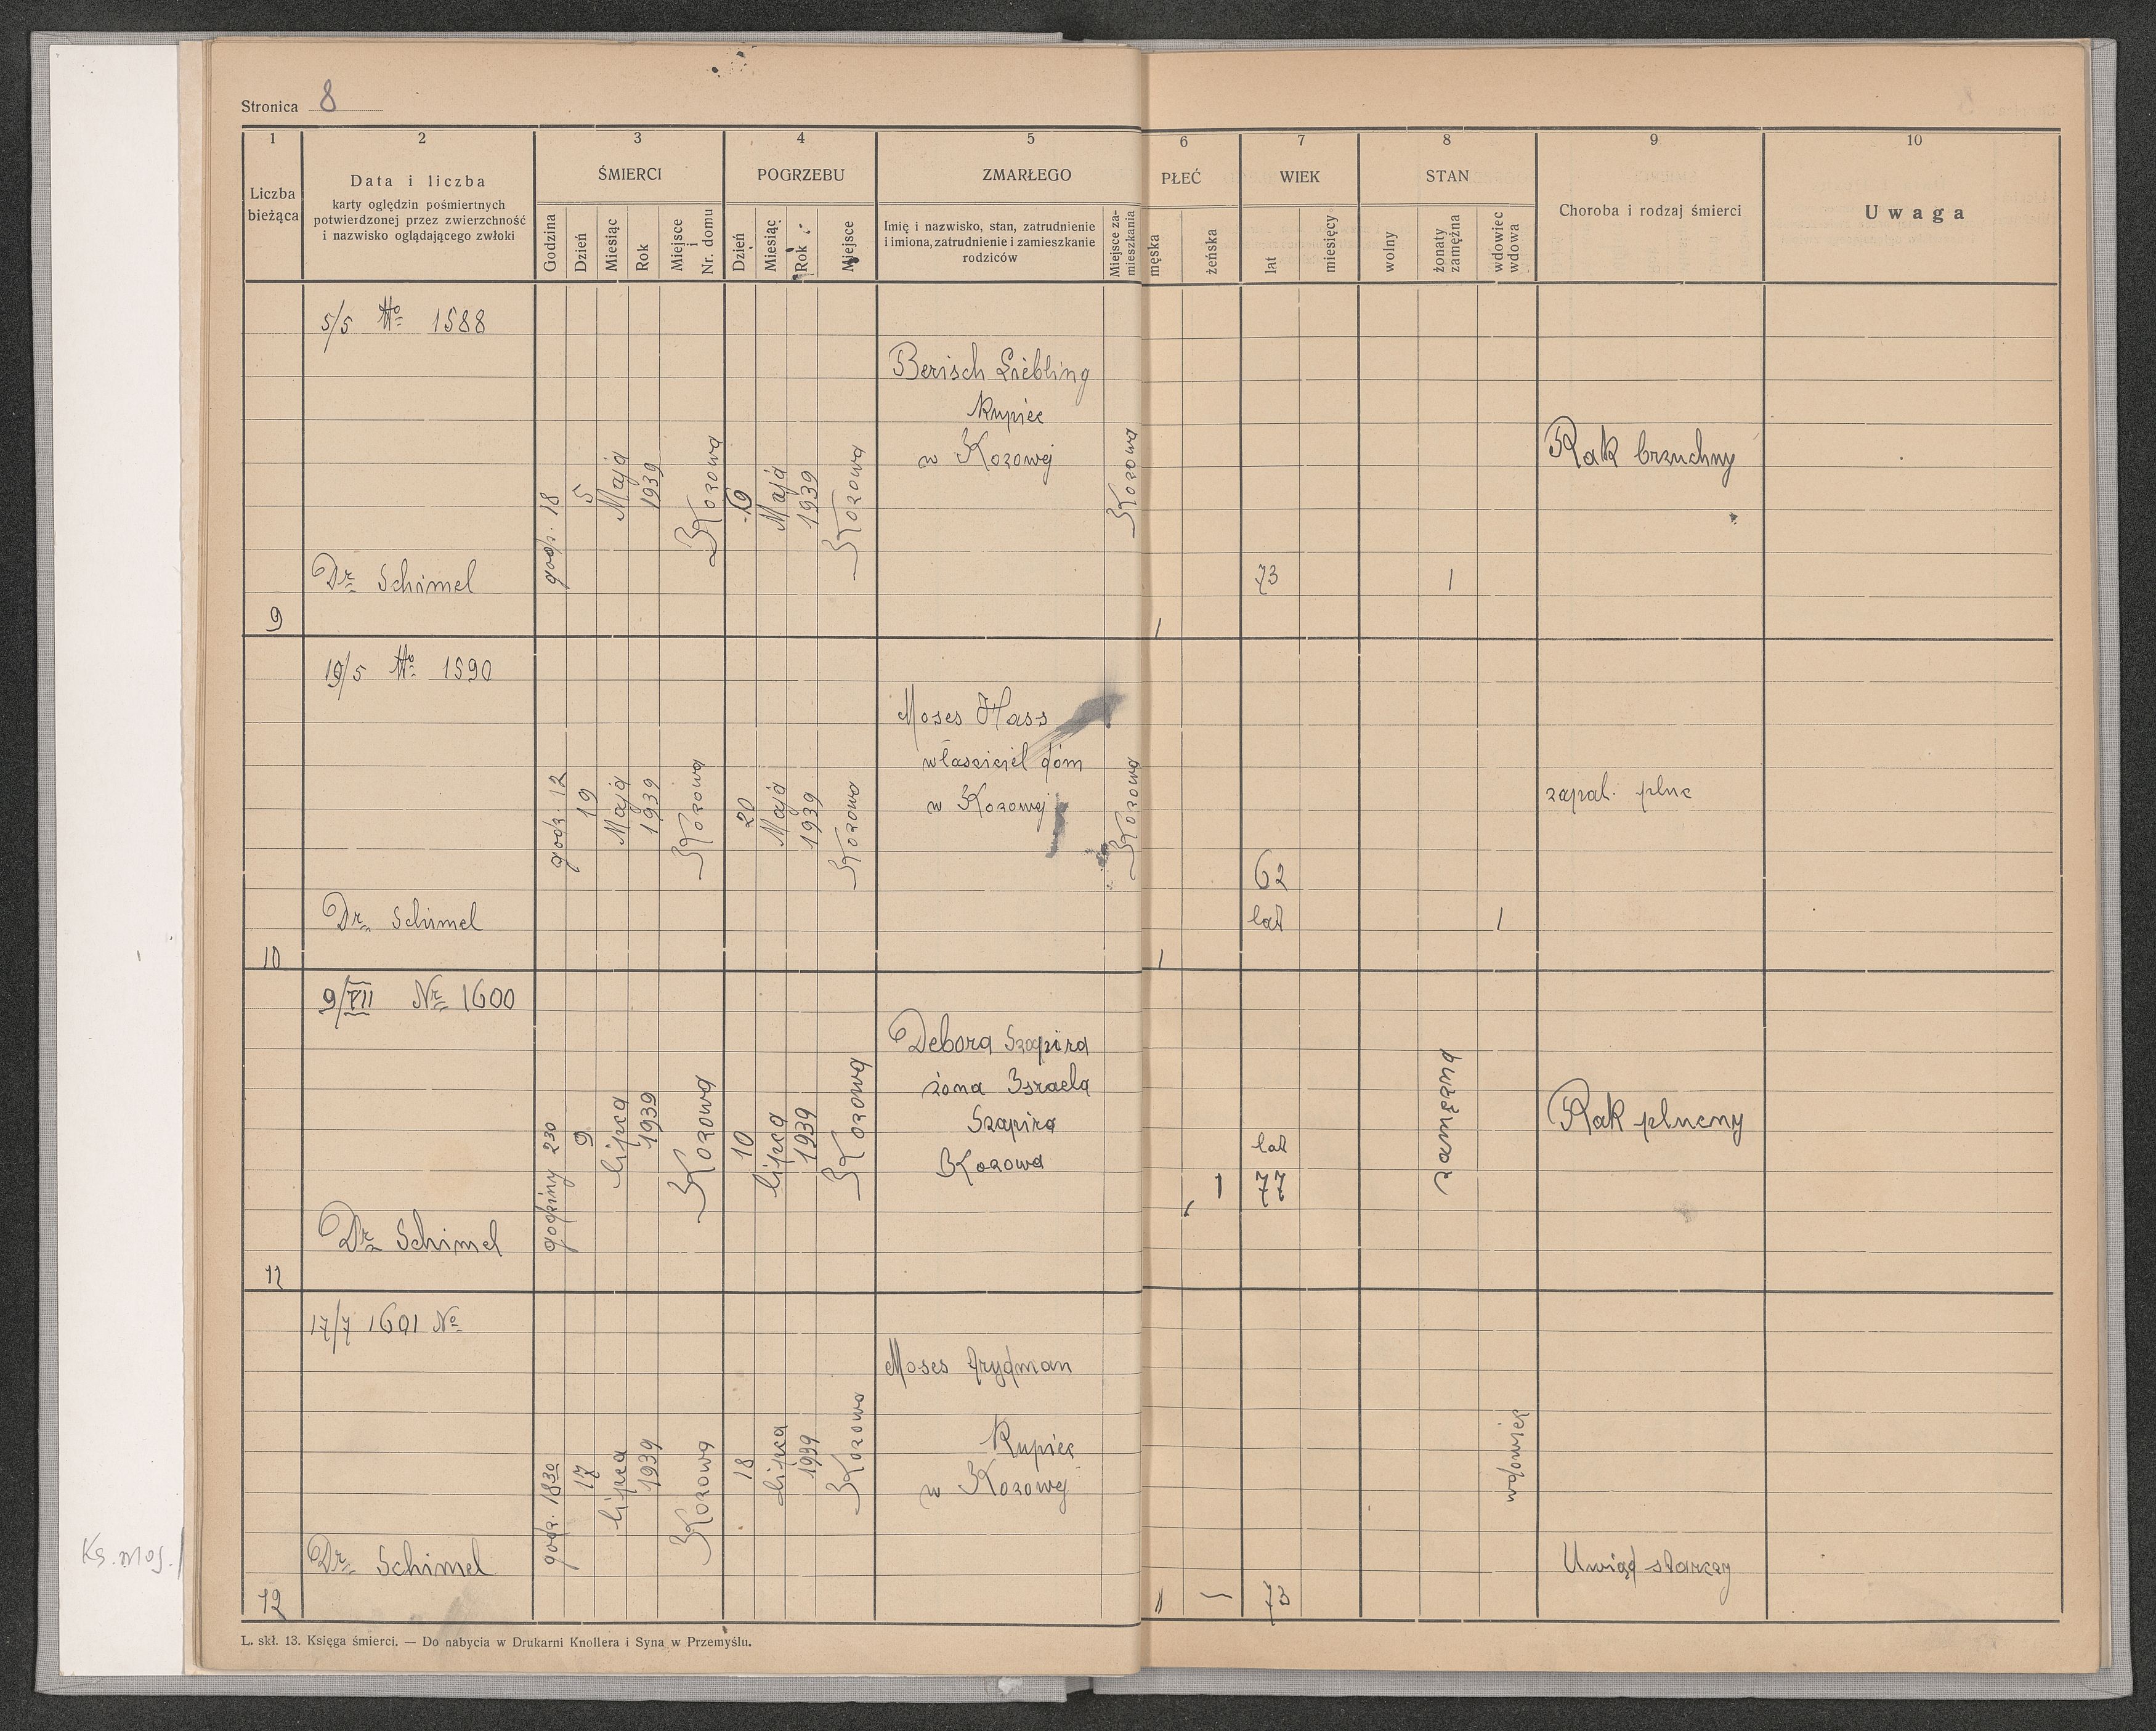 Stronica 8
1 2 3 4 5 6 7 8 9 10
Liczba bieżąca
Data i liczba
karty oględzin pośmiertnych
potwierdzonej przez zwierzchność
i nazwisko oglądającego zwłoki
ŚMIERCI
Godzina
Dzień
Miesiąc
Rok
Miejsce i Nr. domu
POGRZEBU
Dzień
Miesiąc
Rok
Miejsce
ZMARŁEGO
Imię i nazwisko, stan, zatrudnienie
i imiona, zatrudnienie i zamieszkanie
rodziców
Miejsce za-
mieszkania
PŁEĆ
męska
żeńska
WIEK
lat
miesięcy
STAN
wolny
żonaty
zamężna
wdowiec
wdowa
Choroba i rodzaj śmierci
Uwaga
5/5 No 1588
Dr Schimel
9
godz. 18
5
Maja
1939
Kozowa
Maja
1939
Kozowa
Berisch Liebling
Kupiec
w Kozowej
Kozowa
1
73
1
Rak brzuchny
19/5 No 1590
Dr Schimel
10
godz. 12
19
Maja
1939
Kozowa
20
Maja
1939
Kozowa
Moses Hass
właściciel dóm
w Kozowej
Kozowa
1
62
lat
1
zapal. płuc
9/VII Nr 1600
Dr Schimel
11
godziny 230
9
lipca
1939
Kozowa
10
lipca
1939
Kozowa
Debora Szapira
żona Israela
Szapira
Kozowa
1
lat
77
zamężna
Rak płucny
17/7 1601 No
Dr Schimel
12
godz. 1830
17
lipca
1939
Kozowa
18
lipca
1939
Kozowa
Moses Frydman
Kupiec
w Kozowej
1
73
wdowiec
Uwiąd starczy
L. skł. 13. Księga śmierci. — Do nabycia w Drukarni Knollera i Syna w Przemyślu.
Ks. moj.